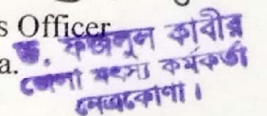 s Officer
ড. ফজলুল কাবীর
a.
জেলা মৎস্য কর্মকর্তা
নেত্রকোণা।